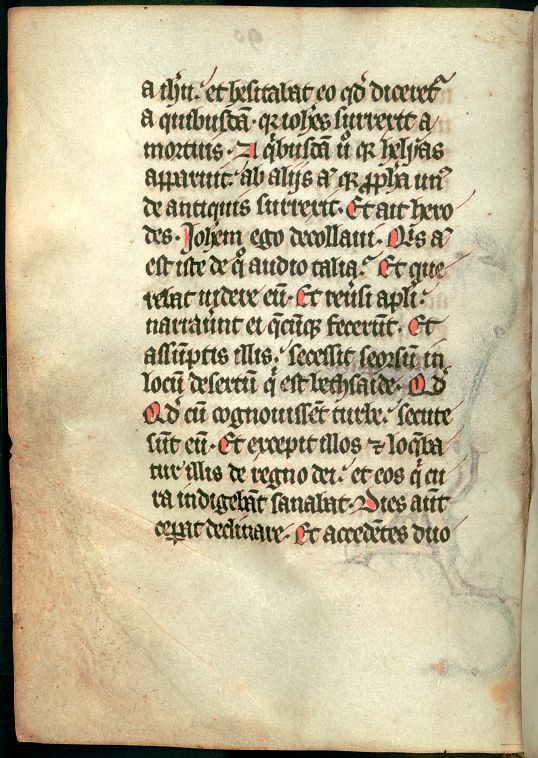 a ihu. et hesitabat eo qd diceret᷑
a quibusdā. qr iohēs surrexit a
mortuis. A qͥbusdā ū qr helyas
apparuit. ab alijs aͭ qr ꝓpha unꝰ
de antiquis surrexit. Et ait hero
des. Johem ego decollaui. Qͥs aͭ
est iste de qͦ audio talia. Et que
rebat uidere eū. Et reūsi apli.
narrauūt ei qͣcūqꝫ fecerūt. Et
assūptis illis. secessit seorsū in
locū desertū qͥ est bethsaide. Qd
Qd cū cognouissēt turbe. secute
sūt eū. Et excepit illos ⁊ loqͣba
tur illis de regno dei. et eos qͥ cu
ra indigebāt sanabat. Dies aūt
ceꝑat declinare. Et accedētes duo